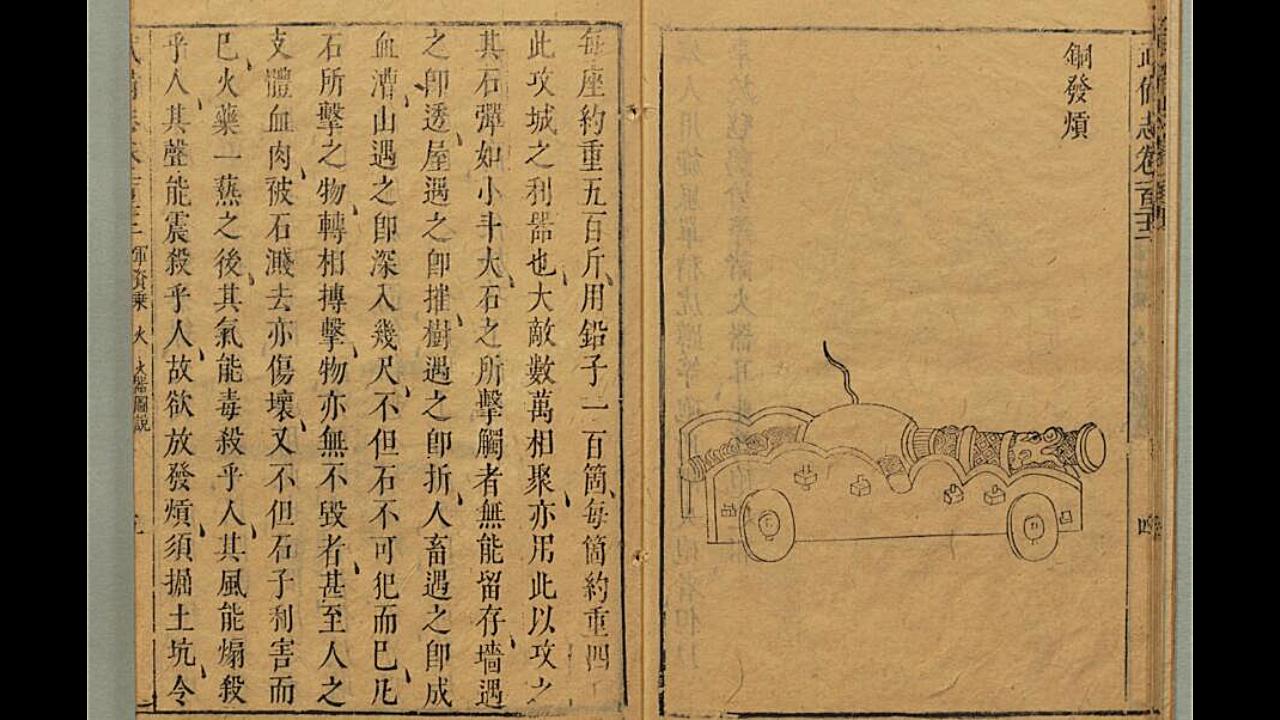 武備志卷一百二十二
四
銅發熕
每座約重五百斤用鉛子一百箇每箇約重四
此攻城之利器也大敵數萬相聚亦用此以攻之
其石彈如小斗大石之所擊觸者無能留存墻遇
之卽透屋遇之卽摧樹遇之卽折人畜遇之卽成
血漕山遇之卽深入幾尺不但石不可犯而巳凡
石所擊之物轉相摶擊物亦無不毀者甚至人之
支體血肉被石濺去亦傷壞又不但石子利害而
巳火藥一爇之後其氣能毒殺乎人其風能煽殺
乎人其聲能震殺乎人故欲放發熕須掘土坑令
軍資乘 火 火器圖說